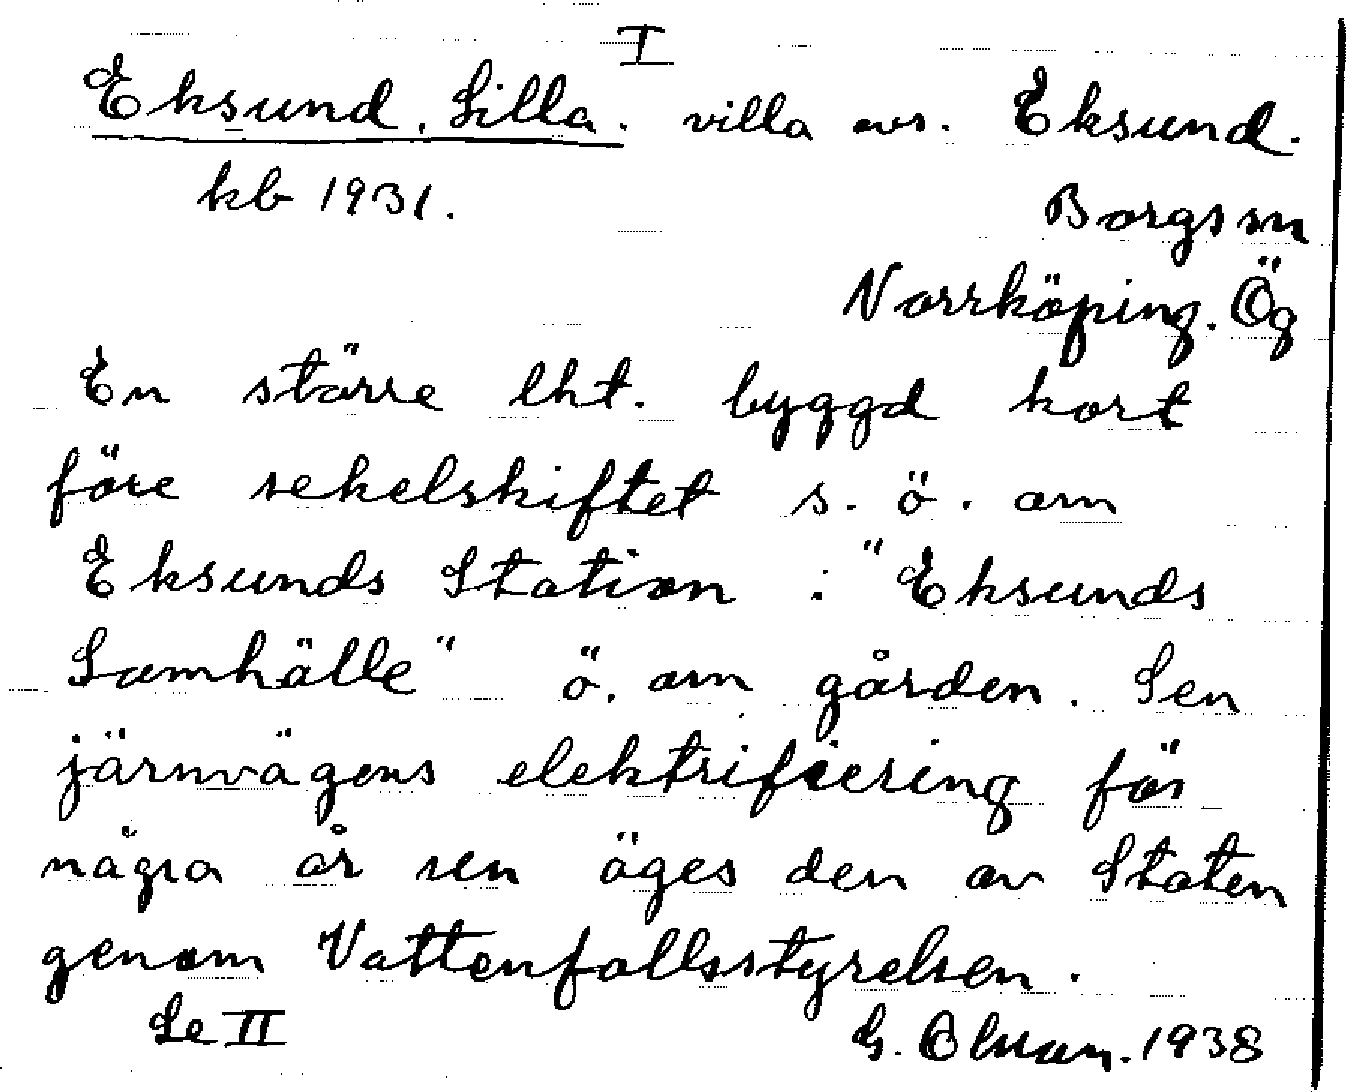 I
Eksund, Lilla. villa avs. Eksund.
kb 1931.
Borgs sn
Norrköping. Ög
En större lht. byggd kort
före sekelskiftet s. ö. om
Eksunds Station i "Eksunds
Samhälle" ö. om gården. Sen
järnvägens elektrifiering för
några år sen äges den av Staten
genom Vattenfallsstyrelsen.
Se II
G. Olson. 1938